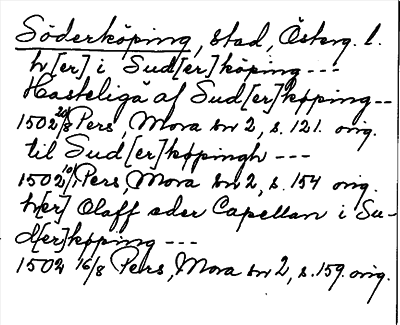 Söderköping, stad, Österg. l.
h[er] i Sud[er]köping ---
Hasteliga af Sud[er]køping --
1502 20/8 Pers, Mora br 2, s. 121. orig.
til Sud[er]køpingh ---
1502 10/1 Pers, Mora br 2, s. 154 orig.
h[er] Olaff eder Capellan i Su-
d[er]køping ---
1502 16/8 Pers, Mora br 2, s. 159. orig.